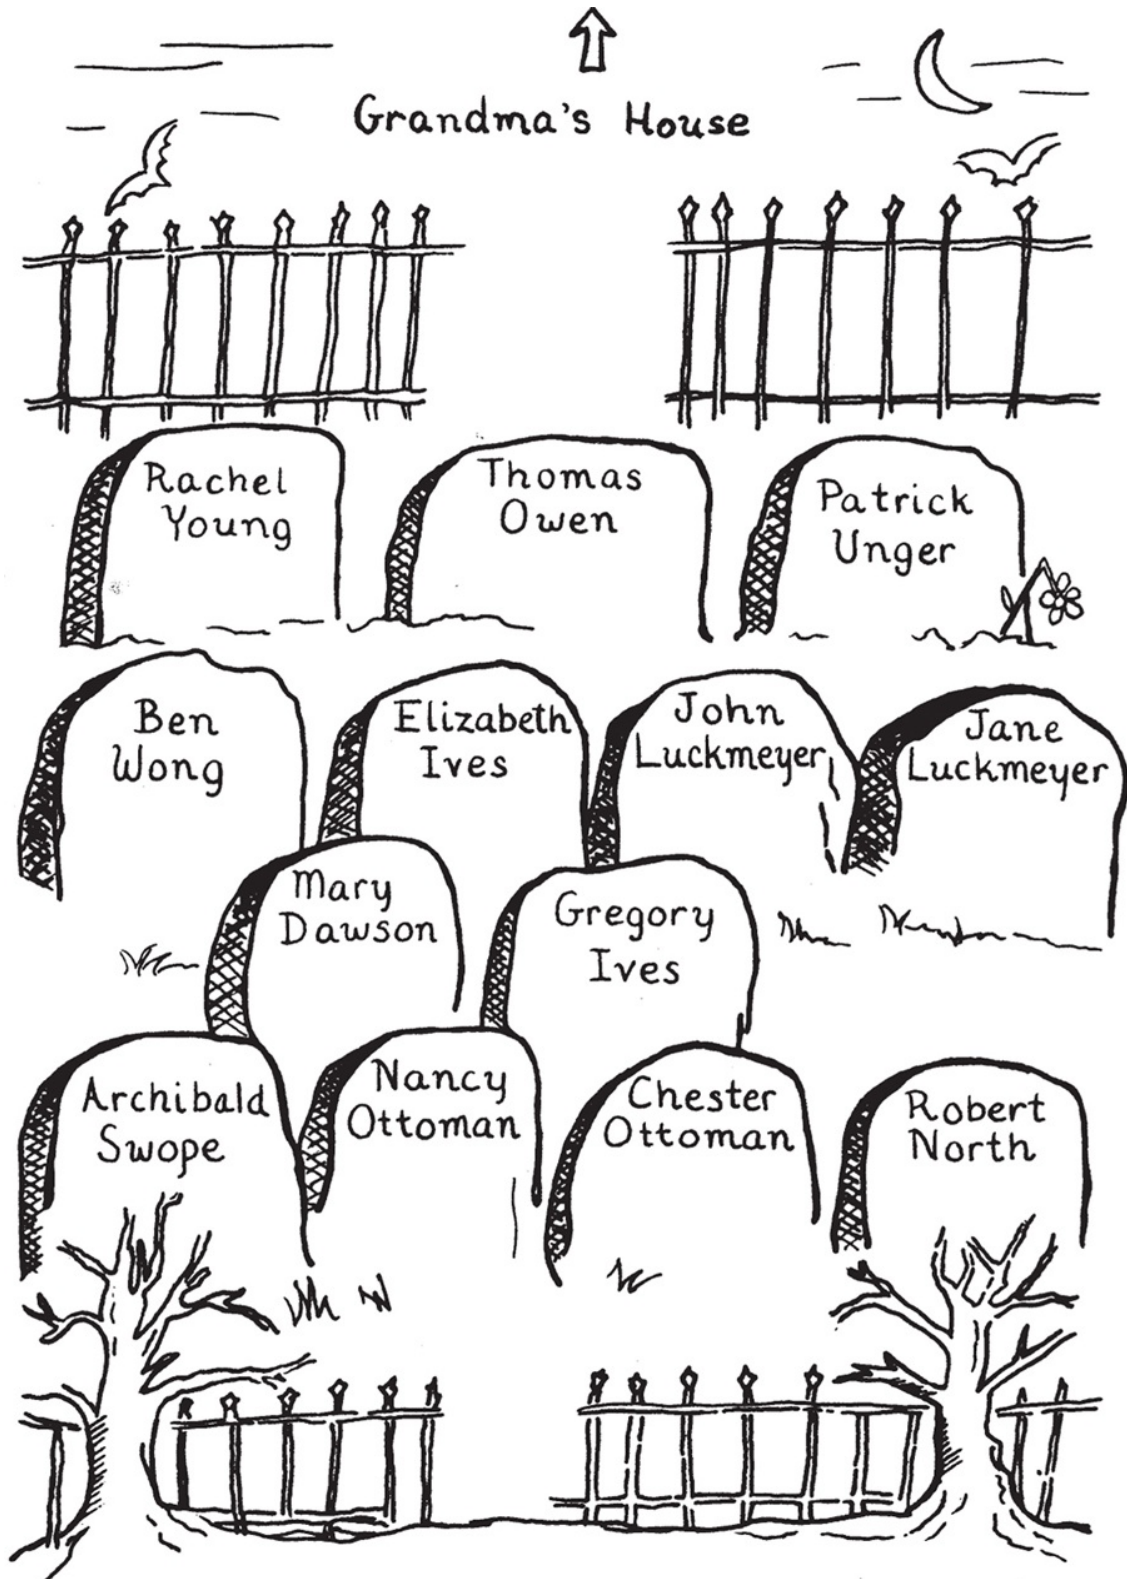 Grandma's House
Rachel
Young
Thomas
Owen
Patrick
Unger
Ben
Wong
Elizabeth
Ives
John
Luckmeyer
Jane
Luckmeyer
Mary
Dawson
Gregory
Ives
Archibald
Swope
Nancy
Ottoman
Chester
Ottoman
Robert
North